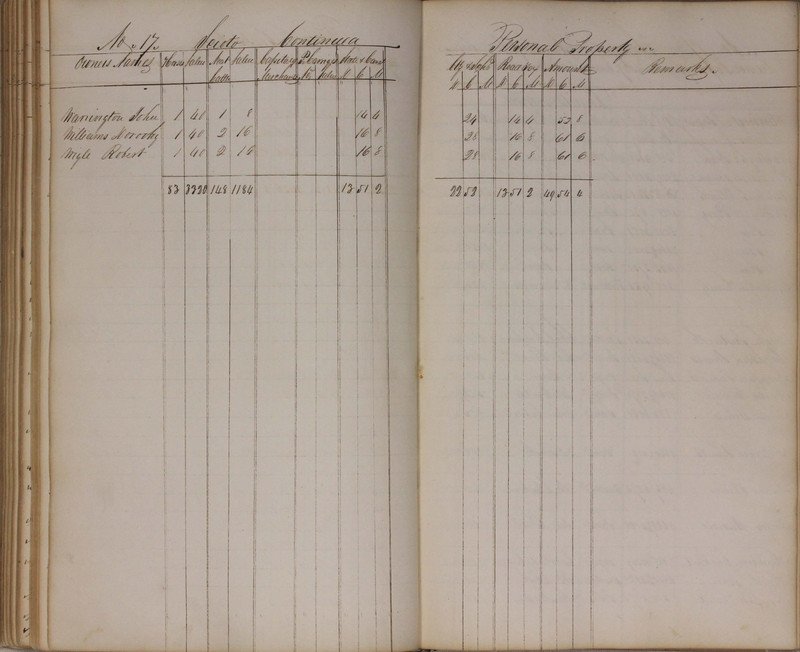 No. 17. Scioto Continued Personal Property
Owners Names Horses Value Neat Cattle Value Capital Merchants Value State & Amount Remarks
D C M D C M D C M D C M
Warrington John 1 40 1 8 14 4 24 14 4 52 8
Williams 1 40 2 16 16 8 28 16 8 61 6
Wigle Robert 1 40 2 16 16 8 28 16 8 61 6
83 3320 148 1184 13 51 2 22 52 13 51 2 49 54 4